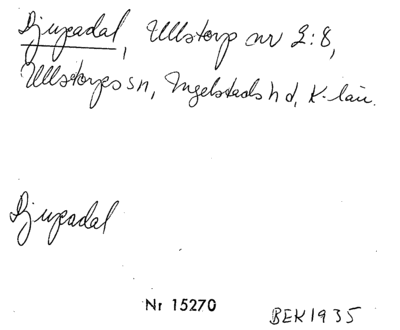 Djupadal, Ullstorp nr 2:8,
Ullstorps sn, Ingelstads hd, K-län.
Djupadal
Nr 15270
BEK1935